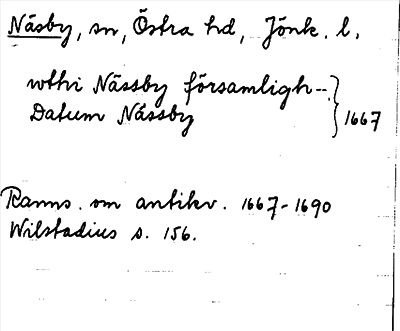 Näsby, sn, Östra hd, Jönk. l.
wthi Nässby församligh--
Datum Nässby } 1667
Ranns. om antikv. 1667-1690
Wilstadius s. 156.